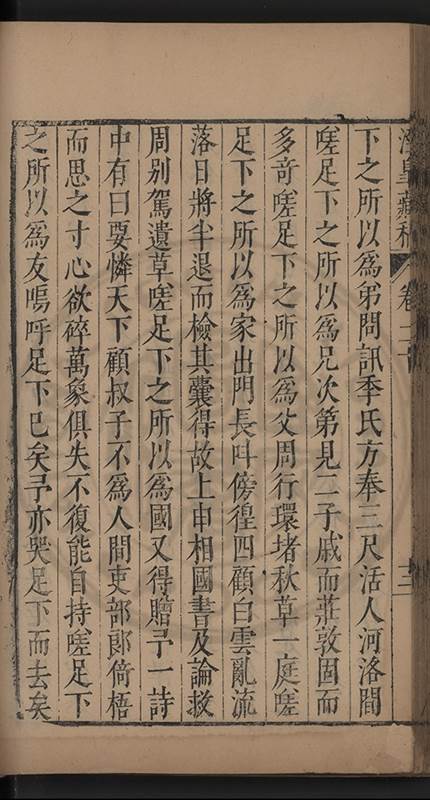 卷二十
三
下之所以爲弟問訊季氏方奉三尺活人河洛間
嗟足下之所以爲兄次第見二子戚而莊敦固而
多奇嗟足下之所以爲父周行環堵秋草一庭嗟
足下之所以爲家出門長呌傍徨四顧白雲亂流
落日將半退而檢其囊得故上申相國書及論救
周别駕遺草嗟足下之所以爲國又得贈予一詩
中有曰要憐天下顧叔子不爲人間吏部郎倚梧
而思之寸心欲碎萬象俱失不復能自持嗟足下
之所以爲友嗚呼足下已矣予亦哭足下而去矣